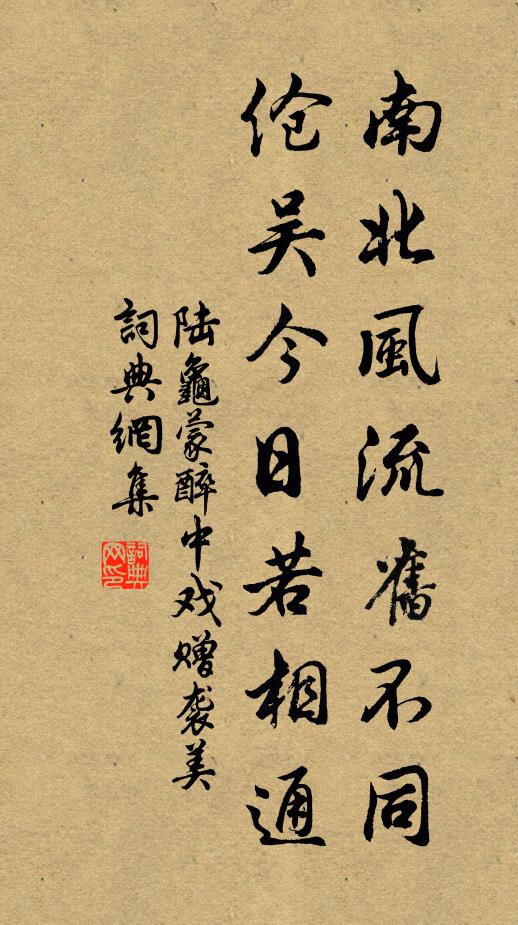 南北風流舊不同
伧吴今日若相通
陆龜蒙醉中戏赠袭美
詞典網集
詞典
网印